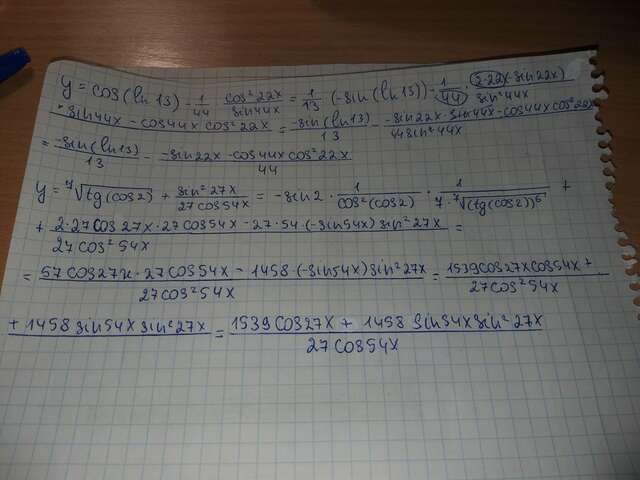 y = cos(ln 13) - 1/44 cos²22x/sin44x = 1/13 (-sin(ln13)) - 1/44 · (2·22x·sin22x)/sin²44x
· sin44x - cos44x cos²22x = -sin(ln13)/13 - -sin22x·sin44x-cos44x cos²22x/44sin²44x
= -sin(ln13)/13 - -sin22x-cos44x cos²22x/44
y = ⁷√tg(cos2) + sin²27x/27cos54x = -sin2 · 1/cos²(cos2) · 1/7·⁷√(tg(cos2))⁶ +
+ 2·27cos27x·27cos54x-27·54(-sin54x)sin²27x/27cos²54x =
= 57cos27x·27cos54x-1458·(-sin54x)sin²27x/27cos²54x = 1539cos27xcos54x+/27cos²54x
+1458sin54xsin²27x = 1539cos27x+1458sin54xsin²27x/27cos54x